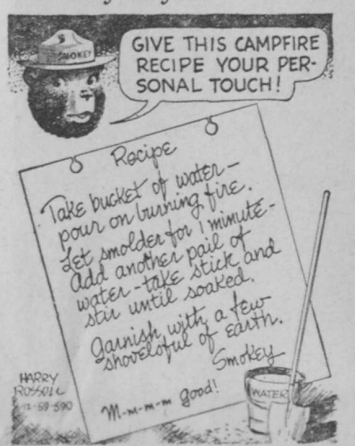 SMOKEY
GIVE THIS CAMPFIRE
RECIPE YOUR PER-
SONAL TOUCH!
Recipe
Take bucket of water—
pour on burning fire.
Let smolder for 1 minute-
Add another pail of
water-take stick and
stir until soaked.
Garnish with a few
shovelsful of earth.
Smokey
M-m-m-m good!
WATER
HARRY
ROSSOLL
12-59-590